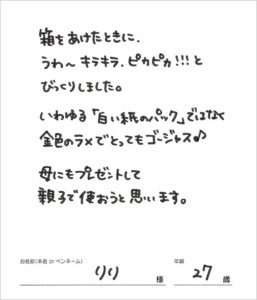 箱をあけたときに、
うわ〜キラキラ、ピカピカ!!!と
びっくりしました。
いわゆる「白い紙のパック」ではなく
金色のラメでとってもゴージャス♪
母にもプレゼントして
親子で使おうと思います。
お名前(本名 or ペンネーム) 年齢
りり 様 27 歳